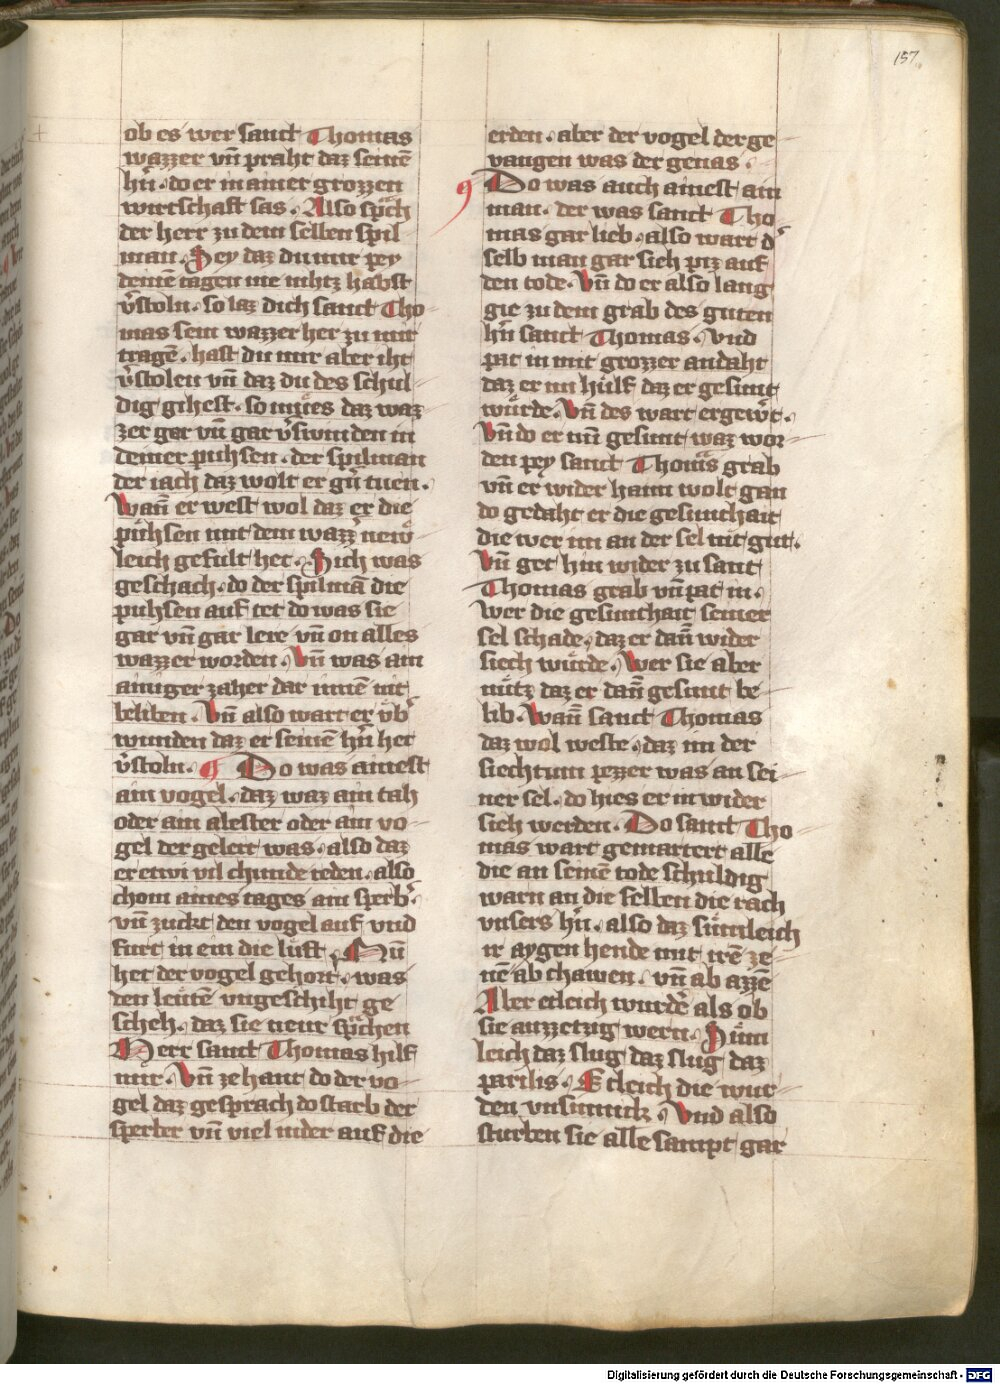 157
ob es wer sanct Thomas
wazzer vñ praht daz seinē
hñ. do er in ainer grozzen
wirtschaft sas. Also sprͣch
der herr zu dem selben spil
man. Sey daz du mir pey
deinē tagen nie nihtz habst
v̉stoln. so laz dich sanct Tho
mas sein wazzer her zu mir
tragē. hast du mir aber iht
v̉stolen vñ daz du des schul
dig gihest. so mu̇es daz waz
zer gar vñ gar v̉swinden in
deiner puhsen. der spilman
der iach daz wolt er gñ tuen.
Wañ er west wol daz er die
pu̇hsen mit dem wazz̉ new
leich gefult het. Sich was
geschach. do der spilmā die
puhsen auf tet do was sie
gar vñ gar lere vñ on alles
wazzer worden. Vñ was ain
ainiger zaher dar innē nit
beliben. Vñ also wart er v̇b̉
wunden daz er seinē hñ het
v̉stoln. Do was ainest
ain vogel. daz waz ain tah
oder ain alester oder ain vo
gel der gelert was. also daz
er etwi vil chunde reden. also
chom aines tages ain sperb̉
vñ zuckt den vogel auf vnd
furt in ein die lu̇ft. Nu̇
het der vogel gehort. was
den leu̇tē vngeschiht ge
scheh. daz sie neur sprͣchen
Herr sanct Thomas hilf
mir. Vñ zehant do der vo
gel daz gesprach do starb der
sperber vñ viel nider auf die
erden. aber der vogel der ge
vangen was der genas.
Do was auch ainest ain
man. der was sanct Tho
mas gar lieb. also wart d̉
selb man gar sich piz auf
den tode. Vñ do er also lang
gie zu dem grab des guten
hñ sanct Thomas. Vnd
pat in mit grozzer andaht
daz er im hu̇lf daz er gesunt
wu̇rde. Vñ des wart er gewe̊rt.
Vñ do er nu̇ gesunt waz wor
den pey sanct Thomͣs grab
vñ er wider haim wolt gan
do gedaht er die gesunthait
die wer im an der sel nit gut.
Vñ get hin wider zu sant
Thomas grab vñ pat in.
wer die gesunthait seiner
sel schade. daz er dañ wider
siech wu̇rde. Wer sie aber
nu̇tz daz er dañ gesunt be
lib. Wañ sanct Thomas
daz wol weste. daz im der
siechtum pezzer was an sei
ner sel. do hies er in wider
sich werden. Do sanct Tho
mas wart gemartert alle
die an seinē tode schuldig
warn an die fellen die rach
vnsers hñ. also daz su̇mleich
ir aygen hende mit irē ze
nē ab chawen. vñ ab azzē
Aber etleich wurdē als ob
sie auzzetzig wern. Su̇m
leich daz slug daz slug daz
parilis. Etleich die wur
den vnsinnick. Vnd also
sturben sie alle sampt gar
Digitalisierung gefördert durch die Deutsche Forschungsgemeinschaft - DFG